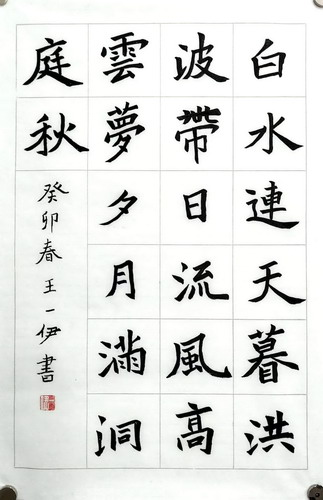 白水連天暮洪
波帶日流風高
雲夢夕月滿洞
庭秋
癸卯春王一伊書